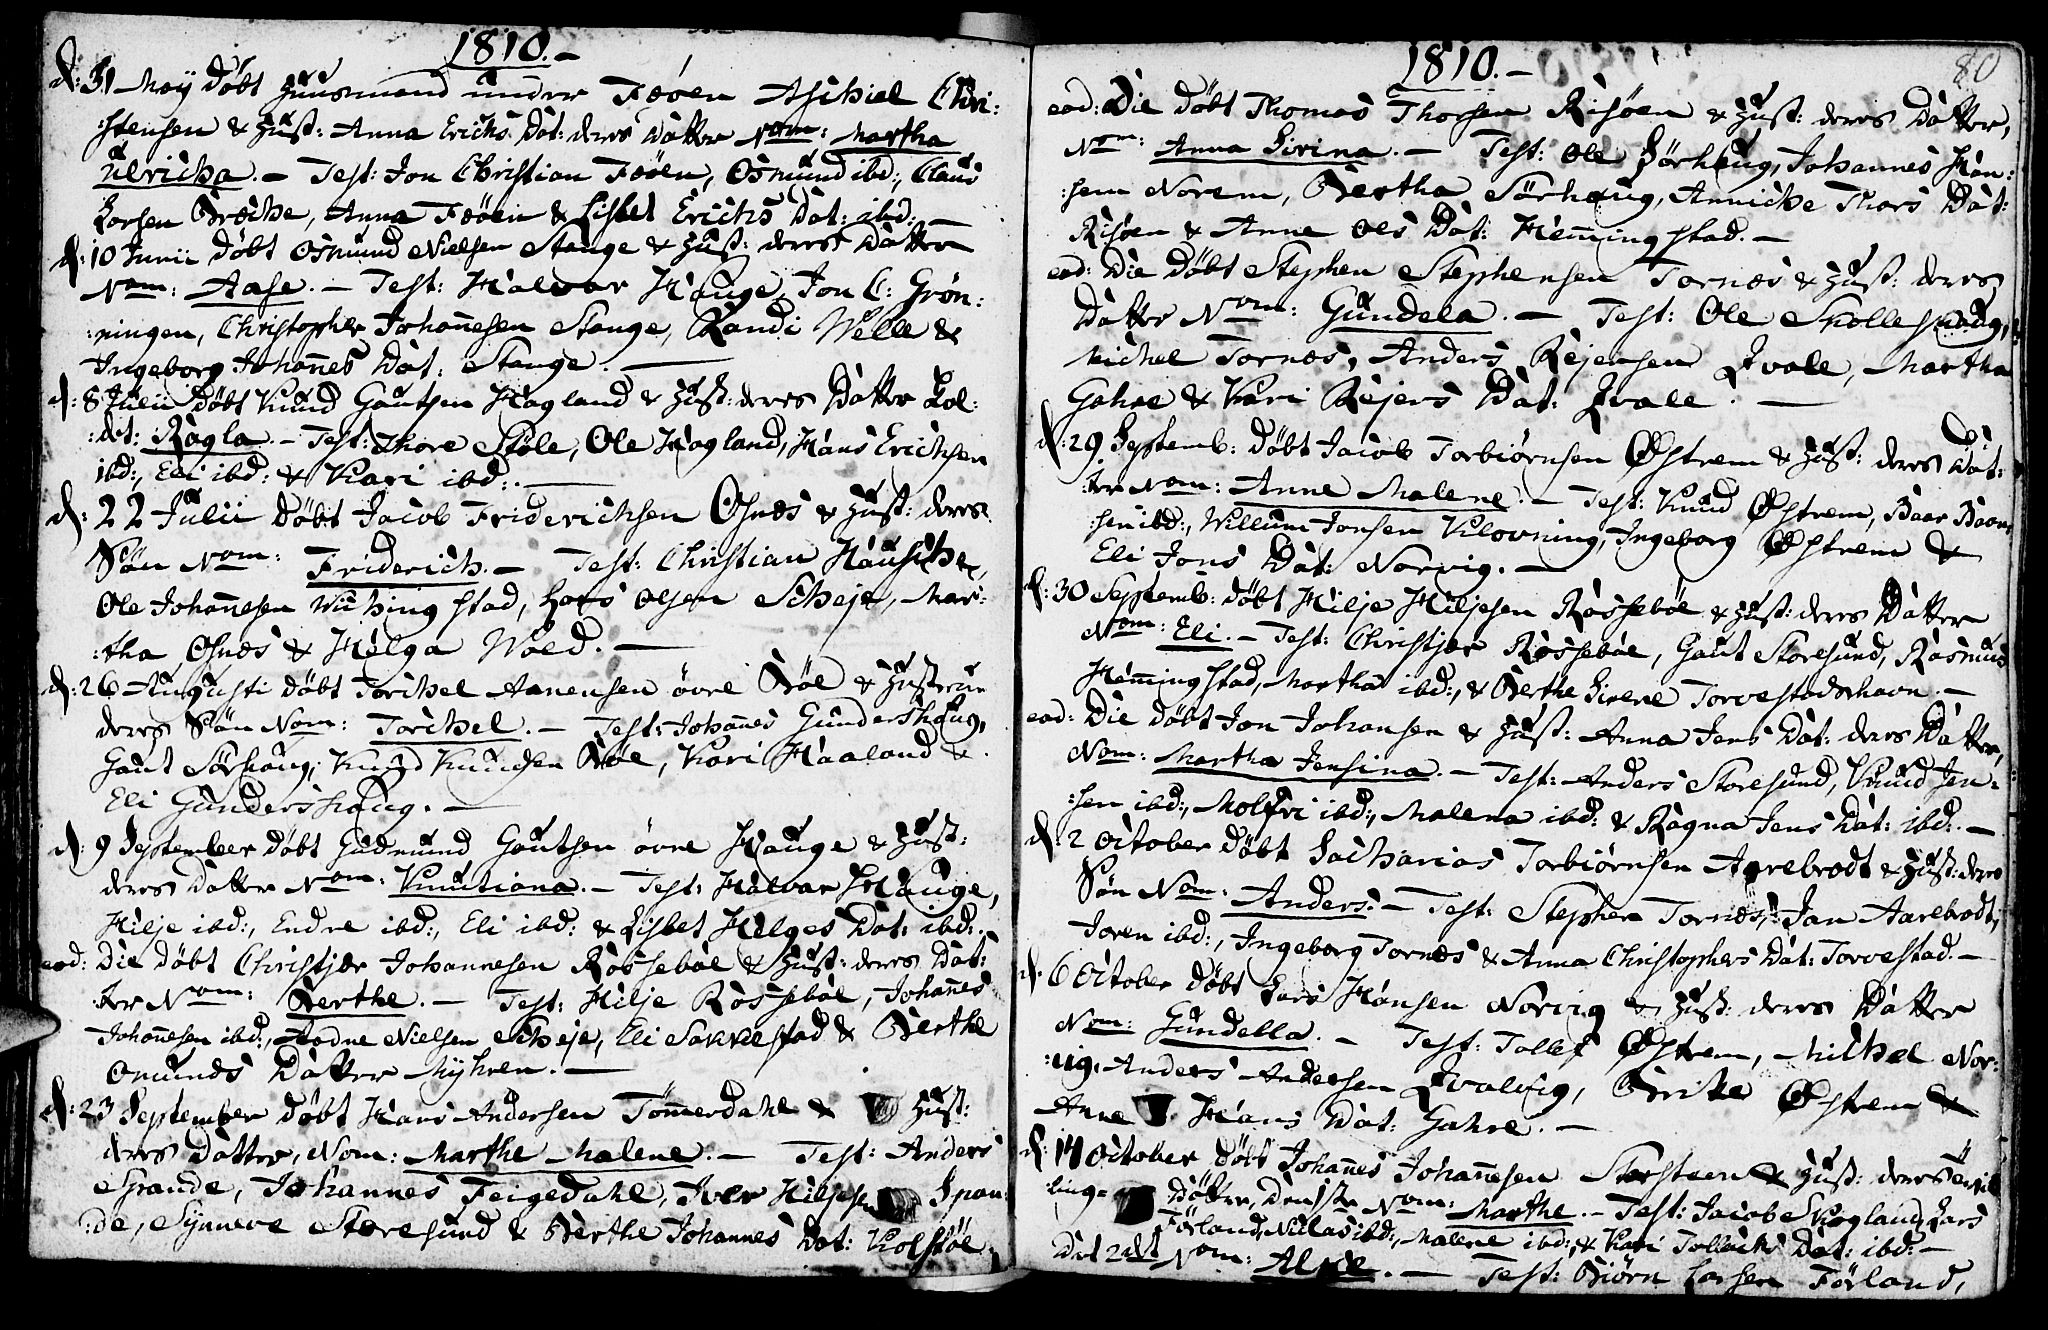 1810.-
d: 31 Maij døbt Huusmand under Føøen Aschiel Chri:
:stensen & Hust: Anna Erichs Dat: deres Datter Nom: Martha
Ulricha. - Test: Jon Christian Føøen, Osmund ibd:, Claus
Larsen Broche, Anna Føøen & Lisbet Erichs Dat: ibd: -
d: 10 Junii døbt Osmund Nielsen Stange & Hust: deres Datter
Nom: Aase. - Test: Halvar Hauge, Jon C: Grøn:
:ningen, Christopher Johañesen Stange, Randi Welle &
Ingeborg Johañes Dat: Stange. -
d: 8 Julii døbt Knud Gautsen Hagland & Hust: deres Datter Kol:
:det: Ragla. - Test: Thore Støle, Ole Hagland, Hans Erichsen
ibd:, Eli ibd: & Kari ibd:. -
d: 22 Julii døbt Jacob Friderichsen Osnes & Hust: deres
Søn Nom: Friderich. - Test: Christian Hausche,
Ole Johañesen Wichingstad, Lars Olsen Scheje, Mar:
:tha Osnes & Helga Wold. -
d: 26 Augusti døbt Torchel Aanensen øvre Bøe & Hustrue
deres Søn Nom: Torchel. - Test: Johañes Gundershaug,
Gaut Sørhaug, Knud Knudsen Bøe, Kari Haaland &
Eli Gundershaug. -
d: 9 September døbt Gudmund Gautsen øvre Hauge & Hust:
deres Datter Nom: Knutiana. - Test: Halvar Hauge,
Hilje ibd:, Endre ibd:, Eli ibd: & Lisbet Helges Dat: ibd:.
eod: Die døbt Christjær Johannesen Røssebøe & Hust: deres Dat:
:ter Nom: Berthe. - Test: Hilje Røssebøe, Johañes
Johañesen ibd:, Aadne Nielsen Scheje, Eli Sakkestad & Berthe
Omunds Datter Myhren. -
d: 23 September døbt Hans Andersen Tømmerdahl & Hust:
deres Datter, Nom: Marthe Malene. - Test: Anders
Spande, Johannes Feigedahl, Iver Hiljesen Span:
:de, Synneve Storesund & Berthe Johannes Dat: Kolstøe.
1810.- 80
eod: Die døbt Thomas Thorsen Risøen & Hust: deres Datter,
Nom: Anna Sirina. - Test: Ole Sørhaug, Johannes Han:
:sen Norem, Bertha Sørhaug, Anniche Thors Dat:
Risøen & Anne Ols Dat: Hemingstad. -
eod: Die døbt Stephen Stephensen Tornes & Hust: deres
Datter Nom: Gundela. - Test: Ole Skolleshaug,
Michel Tornes, Anders Rejersen Qvale, Martha
Gahre & Kari Rejers Dat: Qvale. -
d: 29 Septemb: døbt Jacob Torbiørnsen Østrem & Hust: deres Dat:
:ter Nom: Anne Malene. - Test: Knud Østrem, Baar Baar
:sen ibd:, Willum Jonsen Klovning, Ingeborg Østrem &
Eli Jons Dat: Norvig. -
d: 30 Septemb: døbt Hilje Hiljesen Røssebøe & Hust: deres Datter
Nom: Eli. - Test: Christjær Røssebøe, Gaut Storesund, Rasmus
Hemingstad, Martha ibd:, & Berthe Sirene Torvestadshavn. -
eod: Die døbt Jon Johansen & Hust: Anna Jens Dat: deres Datter,
Nom: Martha Jensina. - Test: Anders Storesund, Knud Jen:
:sen ibd:, Molfri ibd:, Malena ibd: & Ragna Jens Dat: ibd:. -
d: 2 October døbt Sacharias Torbiørnsen Aarebrodt & Hust: deres
Søn Nom: Anders. - Test: Stephen Tornes, Jan Aarebrodt,
Joren ibd:, Ingeborg Tornes & Anna Christophers Dat: Torvestad. -
d: 6 October døbt Lars Hansen Norvig & Hust: deres Datter
Nom: Gundella. - Test: Tollef Østrem, Michel Nor:
:vig, Anders Andersen Qvalvig, Brite Østrem &
Anne Hans Dat: Gahre. -
d: 14 October døbt Johañes Johañesen Storsteen & Hust: deres Tvil
ling= Døtter, Den 1ste Nom: Marthe. - Test: Jacob Skogland, Lars
Førland, Niclas ibd:, Malene ibd:, & Kari Tollachs Dat: ibd: -
Det 2det Nom: Alice. - Test: Biørn Larsen Førland,